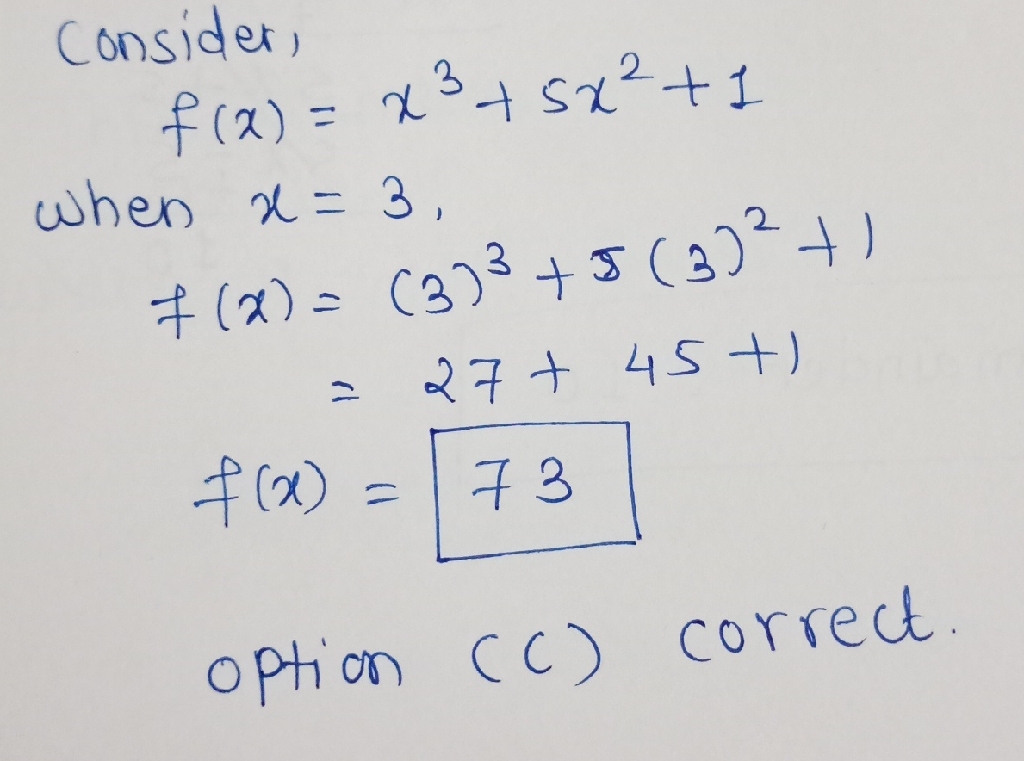 Consider,
f(x) = x³ + 5x² + 1
when x = 3,
f(x) = (3)³ + 5(3)² + 1
= 27 + 45 + 1
f(x) = 73
option (C) correct.